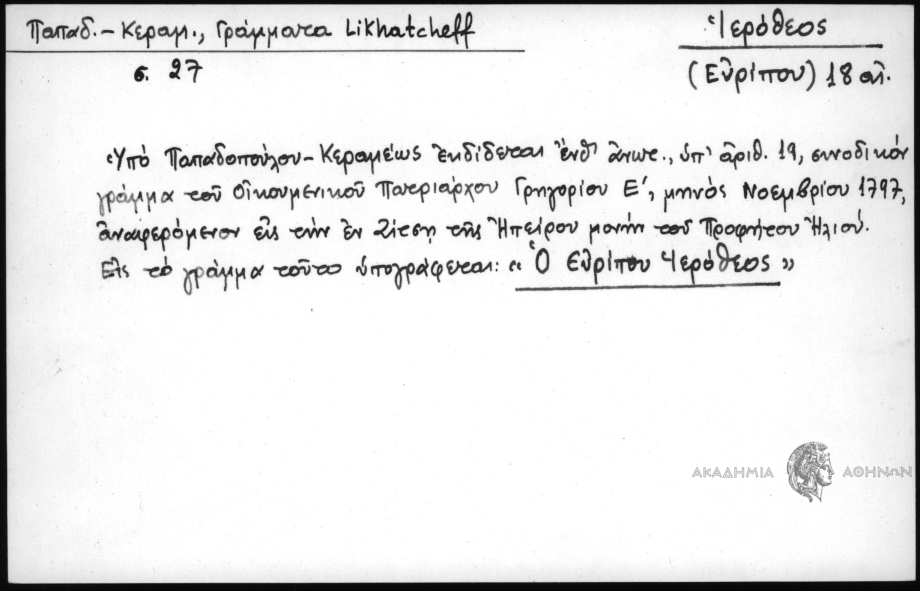 Παπαδ. - Κεραμ., Γράμματα Likhatcheff
σ. 27
Ἱερόθεος
(Εὐρίπου) 18 αἰ.
Ὑπό Παπαδοπούλου - Κεραμέως ἐκδίδεται ἔνθ' ἀνωτ., ὑπ' ἀριθ. 19, συνοδικόν
γράμμα τοῦ Οἰκουμενικοῦ Πατριάρχου Γρηγορίου Ε', μηνός Νοεμβρίου 1797,
ἀναφερόμενον εἰς τήν ἐν Ζίτσῃ τῆς Ἠπείρου μονήν τοῦ Προφήτου Ἠλιού.
Εἰς τό γράμμα τοῦτο ὑπογράφεται: «Ὁ Εὐρίπου Ἱερόθεος»
ΑΚΑΔΗΜΙΑ ΑΘΗΝΩΝ